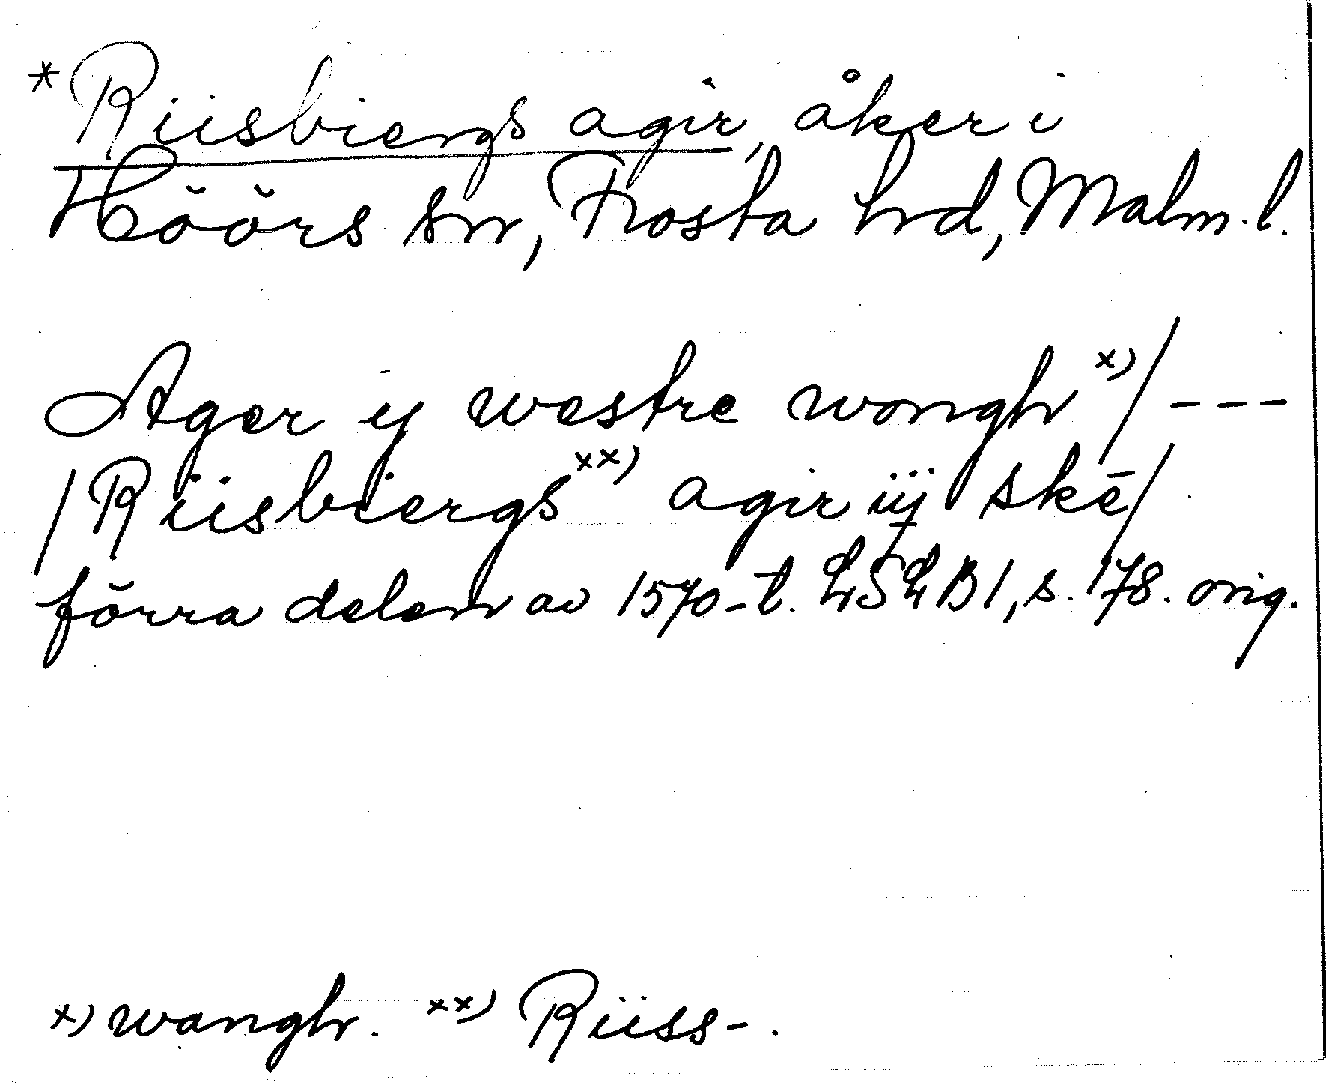 * Riisbiergs agir, åker i
Höörs sn, Frosta hrd, Malm. l.
Ager y westre wongh x) / ---
/ Riisbiergs xx) agir iij skē /
förra delen av 1570-t. LSLB 1, s. 178. orig.
x) wangh. xx) Riiss-.